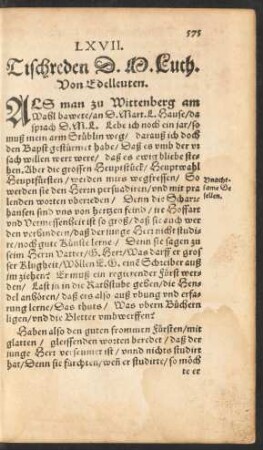 575
LXVII.
Tischreden D. M. Luth.
Von Edelleuten.
ALS man zu Wittenberg am
Wahl bawete/an D. Mart. L. Hause/da
sprach D. M. L. Lebe ich noch ein jar/so
muß mein arm Stüblin weg/ darauß ich doch
den Bapst gestürmet habe/ Daß es vmb der vr
sach willen wert were/ daß es ewig bliebe ste
hen. Aber die grossen Heuptstück/ Heuptwahl
Heuptfürsten/ werden mirs wegfressen/ So
werden sie den Herrn persuadirn/vnd mit pra
lenden worten vberreden/ Denn die Schar
hansen sind vns von hertzen feind/ ire Hoffart
vnd Vermessenheit ist so groß/ daß sie auch wer
den verhindern/daß der junge Herr nicht studi
re/noch gute Künste lerne/ Denn sie sagen zu
seim Herrn Vatter/ G. Herr/ Was darff er gros
ser Klugheit/ Wöllen E. G. eine Schreiber auß
im ziehen? Er muß ein regierender Fürst wer
den/ Last in in die Rathstube gehen/ die Hen
del anhören/ daß ers also auß vbung vnd erfa
rung lerne/ Das thuts/ Was vbern Büchern
ligen/vnd die Bletter vmbwerffen?
Haben also den guten frommen Fürsten/mit
glatten / gleissenden worten beredet/ daß der
junge Herr verseumet ist / vnnd nichts studirt
hat/ Denn sie fürchten/ weñ er studirte/ so möch
te er